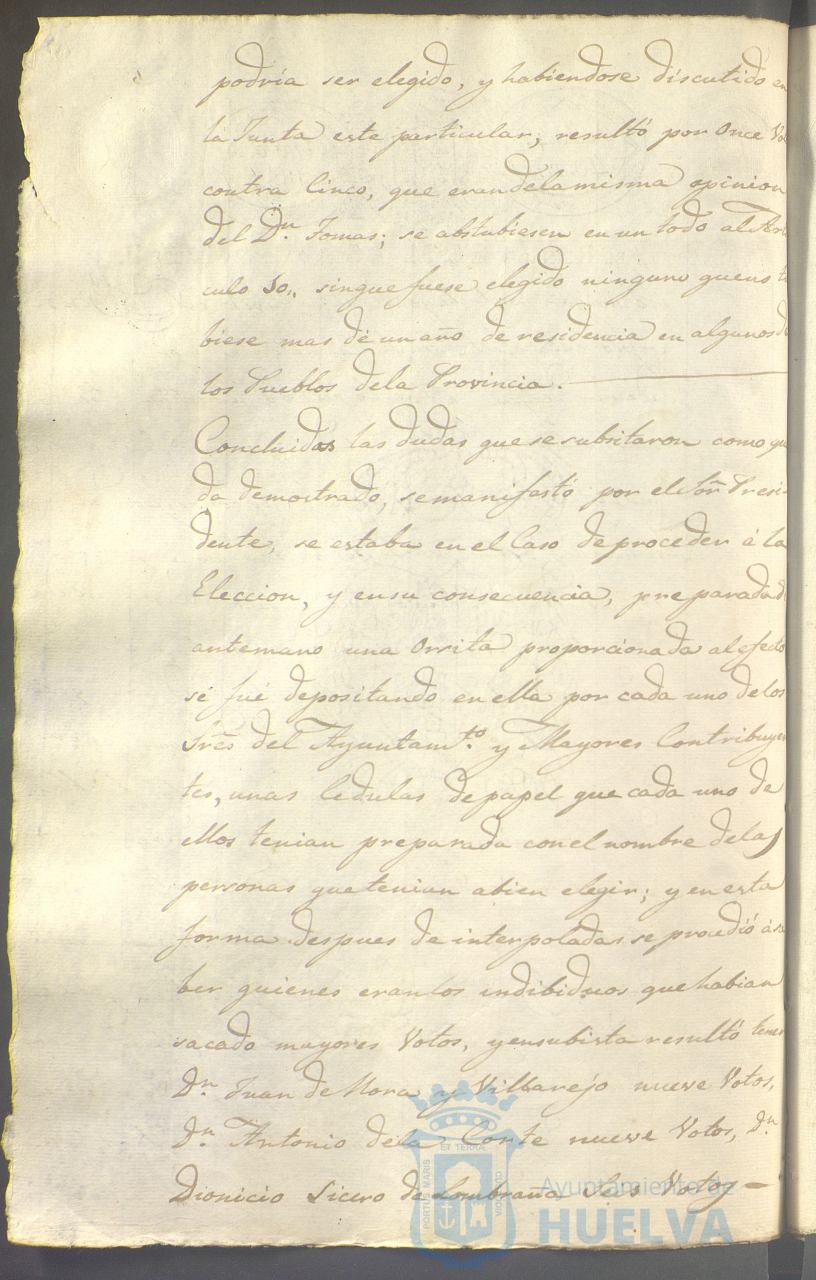 podría ser elegido, y habiendose discutido en
la Junta este particular, resultó por Once Vo
contra Cinco, que eran dela misma opinion
del Dn. Tomas; se abstubiesen en un todo al Arti
culo 50,, sin que fuese elegido ninguno que no tu
biese mas de un año de residencia en algunos de
los Pueblos dela Provincia.
Concluidas las dudas que se subsitaron como que
da demostrado, se manifestó por el Sor. Presi-
dente, se estaba en el Caso de proceder á la
Eleccion, y en su consecuencia, preparada de
antemano una Orsita proporcionada al efecto
se fué depositando en ella por cada uno de los
Sres. del Ayuntamto. y Mayores Contribuyen
tes, unas Cedulas de papel que cada uno de
ellos tenian preparada con el nombre delas
personas que tenian abien elegir; y en esta
forma despues de interpoladas se procedió á sa
ber quienes eran los indibiduos que habian
sacado mayores Votos, y en su bista resultó tener
Dn. Juan de Mora y Villarejo nueve Votos,
Dn. Antonio dela Corte nueve Votos, Dn
Dionicio Sicero de Lombraña Seis Votos
PORTUS MARIS
ET TERRÆ
CUSTODIA
Ayuntamiento de
HUELVA